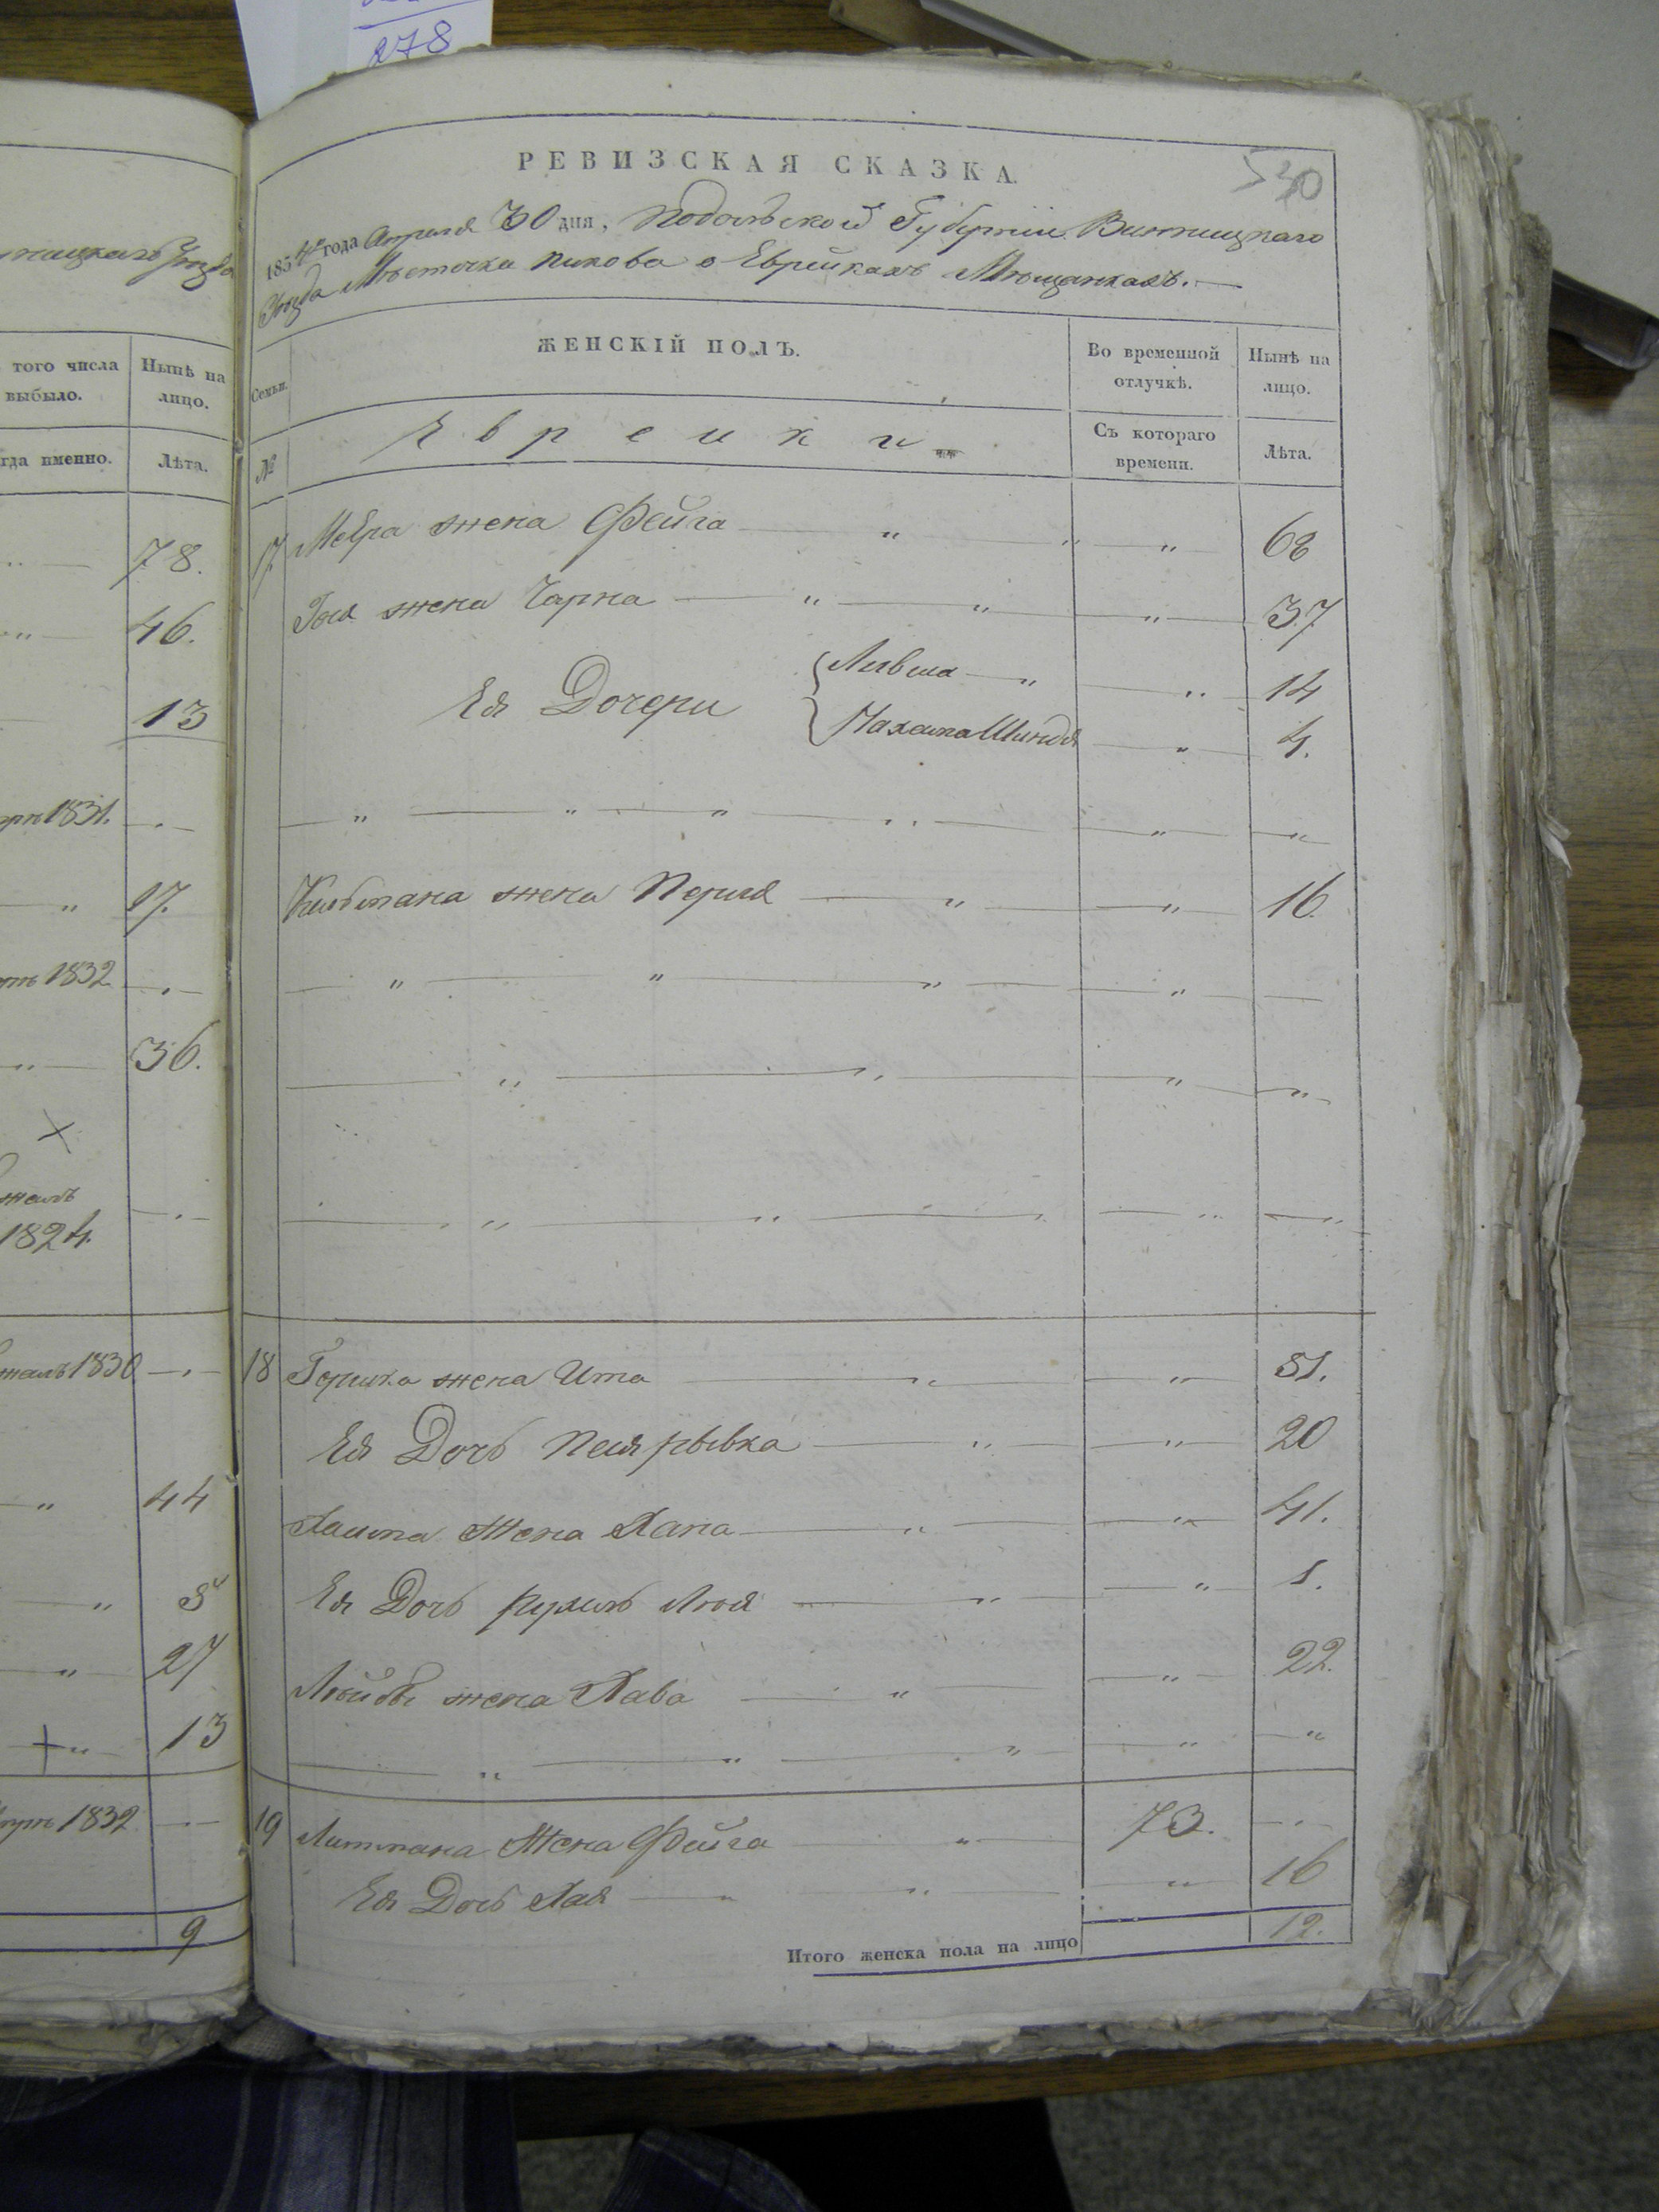 278
того числа
выбыло.
Нынѣ на
лицо.
гда именно.
Лѣта.
78.
46.
13
1831.
17.
1832
36.
1824.
1830
44
27
13
1832
9
530
РЕВИЗСКАЯ СКАЗКА.
1834 года Апреля 30 дня, Подольской Губерніи Винницкаго
Уезда Мѣстечка Пикова о Еврейкахъ Мѣщанкахъ.
Семьи.
ЖЕНСКІЙ ПОЛЪ.
Во временной
отлучкѣ.
Нынѣ на
лицо.
№
Евреики
Съ котораго
времени.
Лѣта.
17. Меера жена Фейга 68
жена Чарна 37
Ея Дочери 14
4.
жена Перля 16.
18 Гершка жена Ита 51.
Ея Дочь Песя рывка 20
Хаима Жена Хана 41.
Ея Дочь рухля Лея 1.
жена Хава 22.
19 Литмана Жена Фейга 73.
Ея Дочь Хая 16
Итого женска пола на лицо 12.